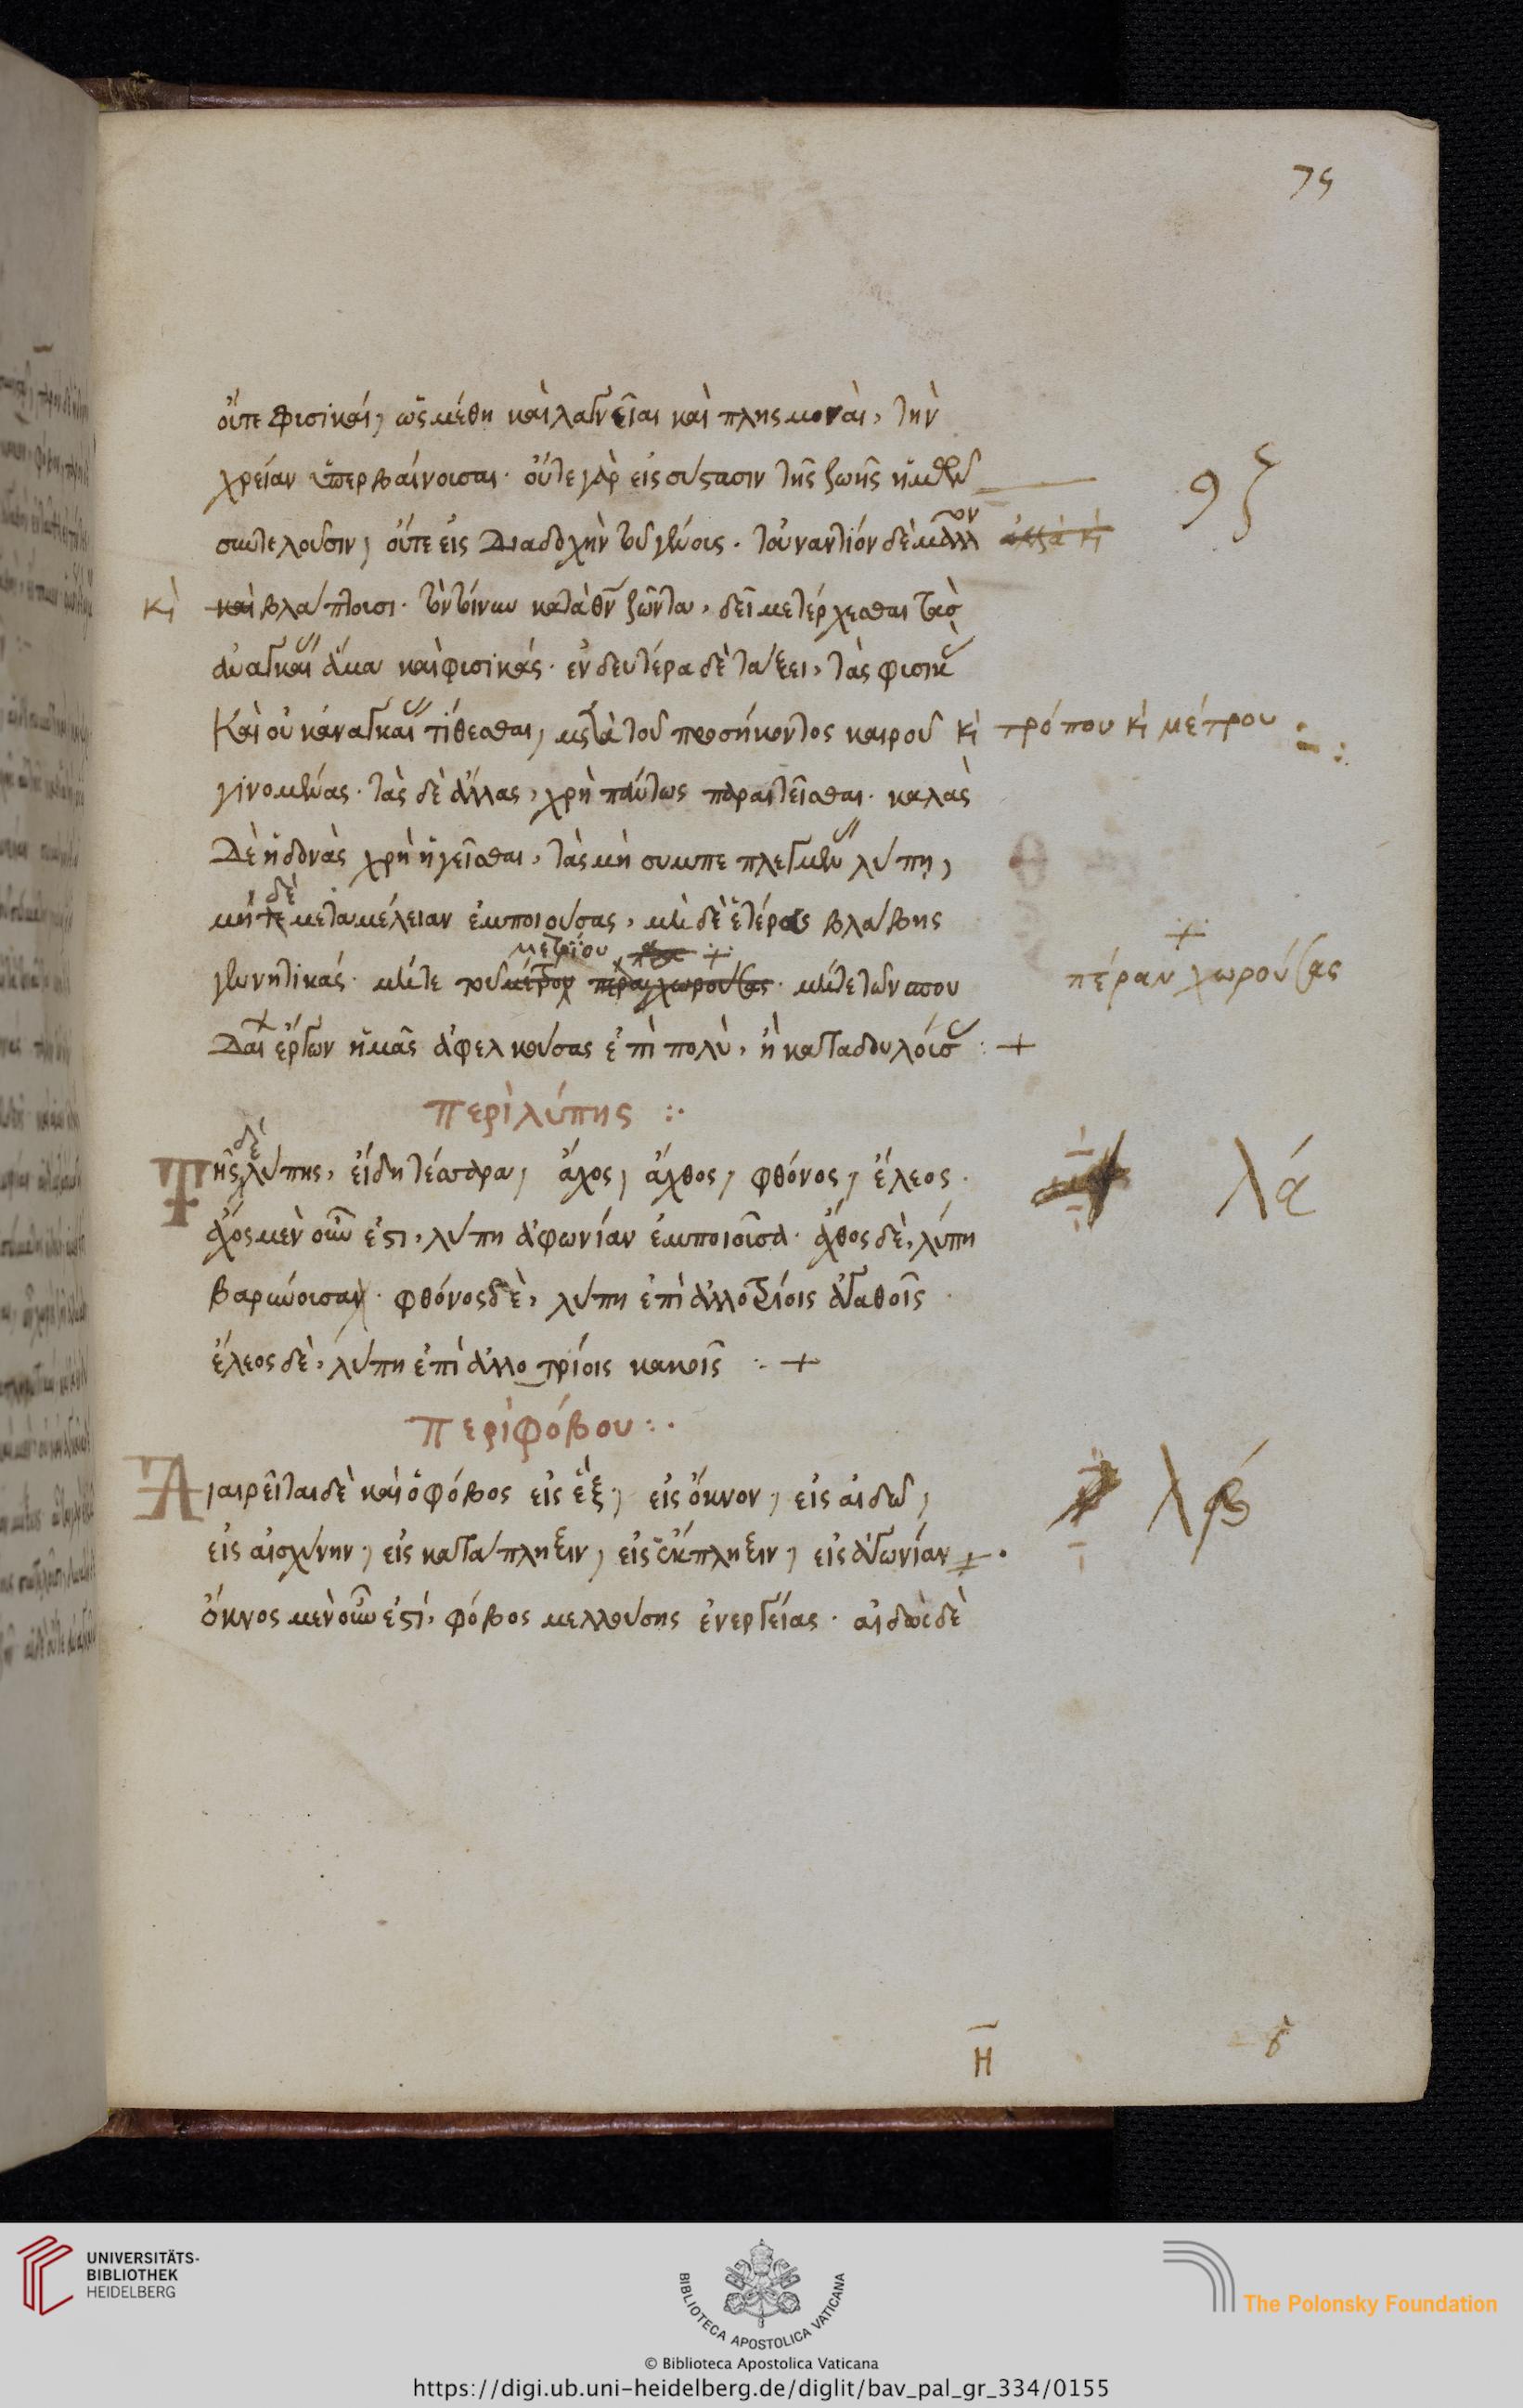 75
οὔτε φυσικαί, ὡς μέθη καὶ λαγνεῖαι καὶ πλησμοναὶ, τὴν
χρείαν ὑπερβαίνουσαι· οὔτε γὰρ εἰς σύστασιν τῆς ζωῆς ἡμῶν
συντελοῦσιν, οὔτε εἰς διαδοχὴν τοῦ γένους· τοὐναντίον δὲ μᾶλλον
κὶ καὶ βλάπτουσι· τὸν τοίνυν κατὰ θν ζῶντα, δεῖ μετέρχεσθαι τὰς
ἀναγκαίας ἅμα καὶ φυσικάς· ἐν δευτέρα δὲ τάξει, τὰς φυσικὰς
καὶ οὐκ ἀναγκαίας τίθεσθαι, μετὰ τοῦ προσήκοντος καιροῦ κὶ τρόπου κὶ μέτρου
γινομένας· τὰς δὲ ἄλλας, χρὴ πάντως παραιτεῖσθαι· καλὰς
δὲ ἡδονὰς χρὴ ἡγεῖσθαι, τὰς μὴ συμπεπλεγμένας λύπη,
μήτε δὲ μεταμέλειαν ἐμποιούσας, μὴ δὲ ἑτέρας βλάβης
μετρίου
γεννητικάς· μήτε τοῦ μέτρου πέραν χωρούσας· μήτε τῶν σπου
πέραν χωρούσας
δαίων ἔργων ἡμᾶς ἀφελκούσας ἐπὶ πολὺ, ἢ καταδουλούσας :+
Περὶ λύπης :·
Τῆς δὲ λύπης, εἴδη τέσσαρα, ἄχος, ἄχθος, φθόνος, ἔλεος·
λά
ἄχος μὲν οὖν ἐστι, λύπη ἀφωνίαν ἐμποιοῦσα· ἄχθος δὲ, λύπη
βαρύνουσα· φθόνος δὲ, λύπη ἐπὶ ἀλλοτρίοις ἀγαθοῖς·
ἔλεος δὲ, λύπη ἐπὶ ἀλλοτρίοις κακοῖς :+
Περὶ φόβου :·
Διαιρεῖται δὲ καὶ ὁ φόβος εἰς ἓξ, εἰς ὄκνον, εἰς αἰδῶ,
λβ
εἰς αἰσχύνην, εἰς κατάπληξιν, εἰς ἔκπληξιν, εἰς ἀγωνίαν+·
ὄκνος μὲν οὖν ἐστί, φόβος μελλούσης ἐνεργείας· αἰδὼς δὲ
Η
UNIVERSITÄTS-
BIBLIOTHEK
HEIDELBERG
BIBLIOTECA APOSTOLICA VATICANA
The Polonsky Foundation
© Biblioteca Apostolica Vaticana
https://digi.ub.uni-heidelberg.de/diglit/bav_pal_gr_334/0155